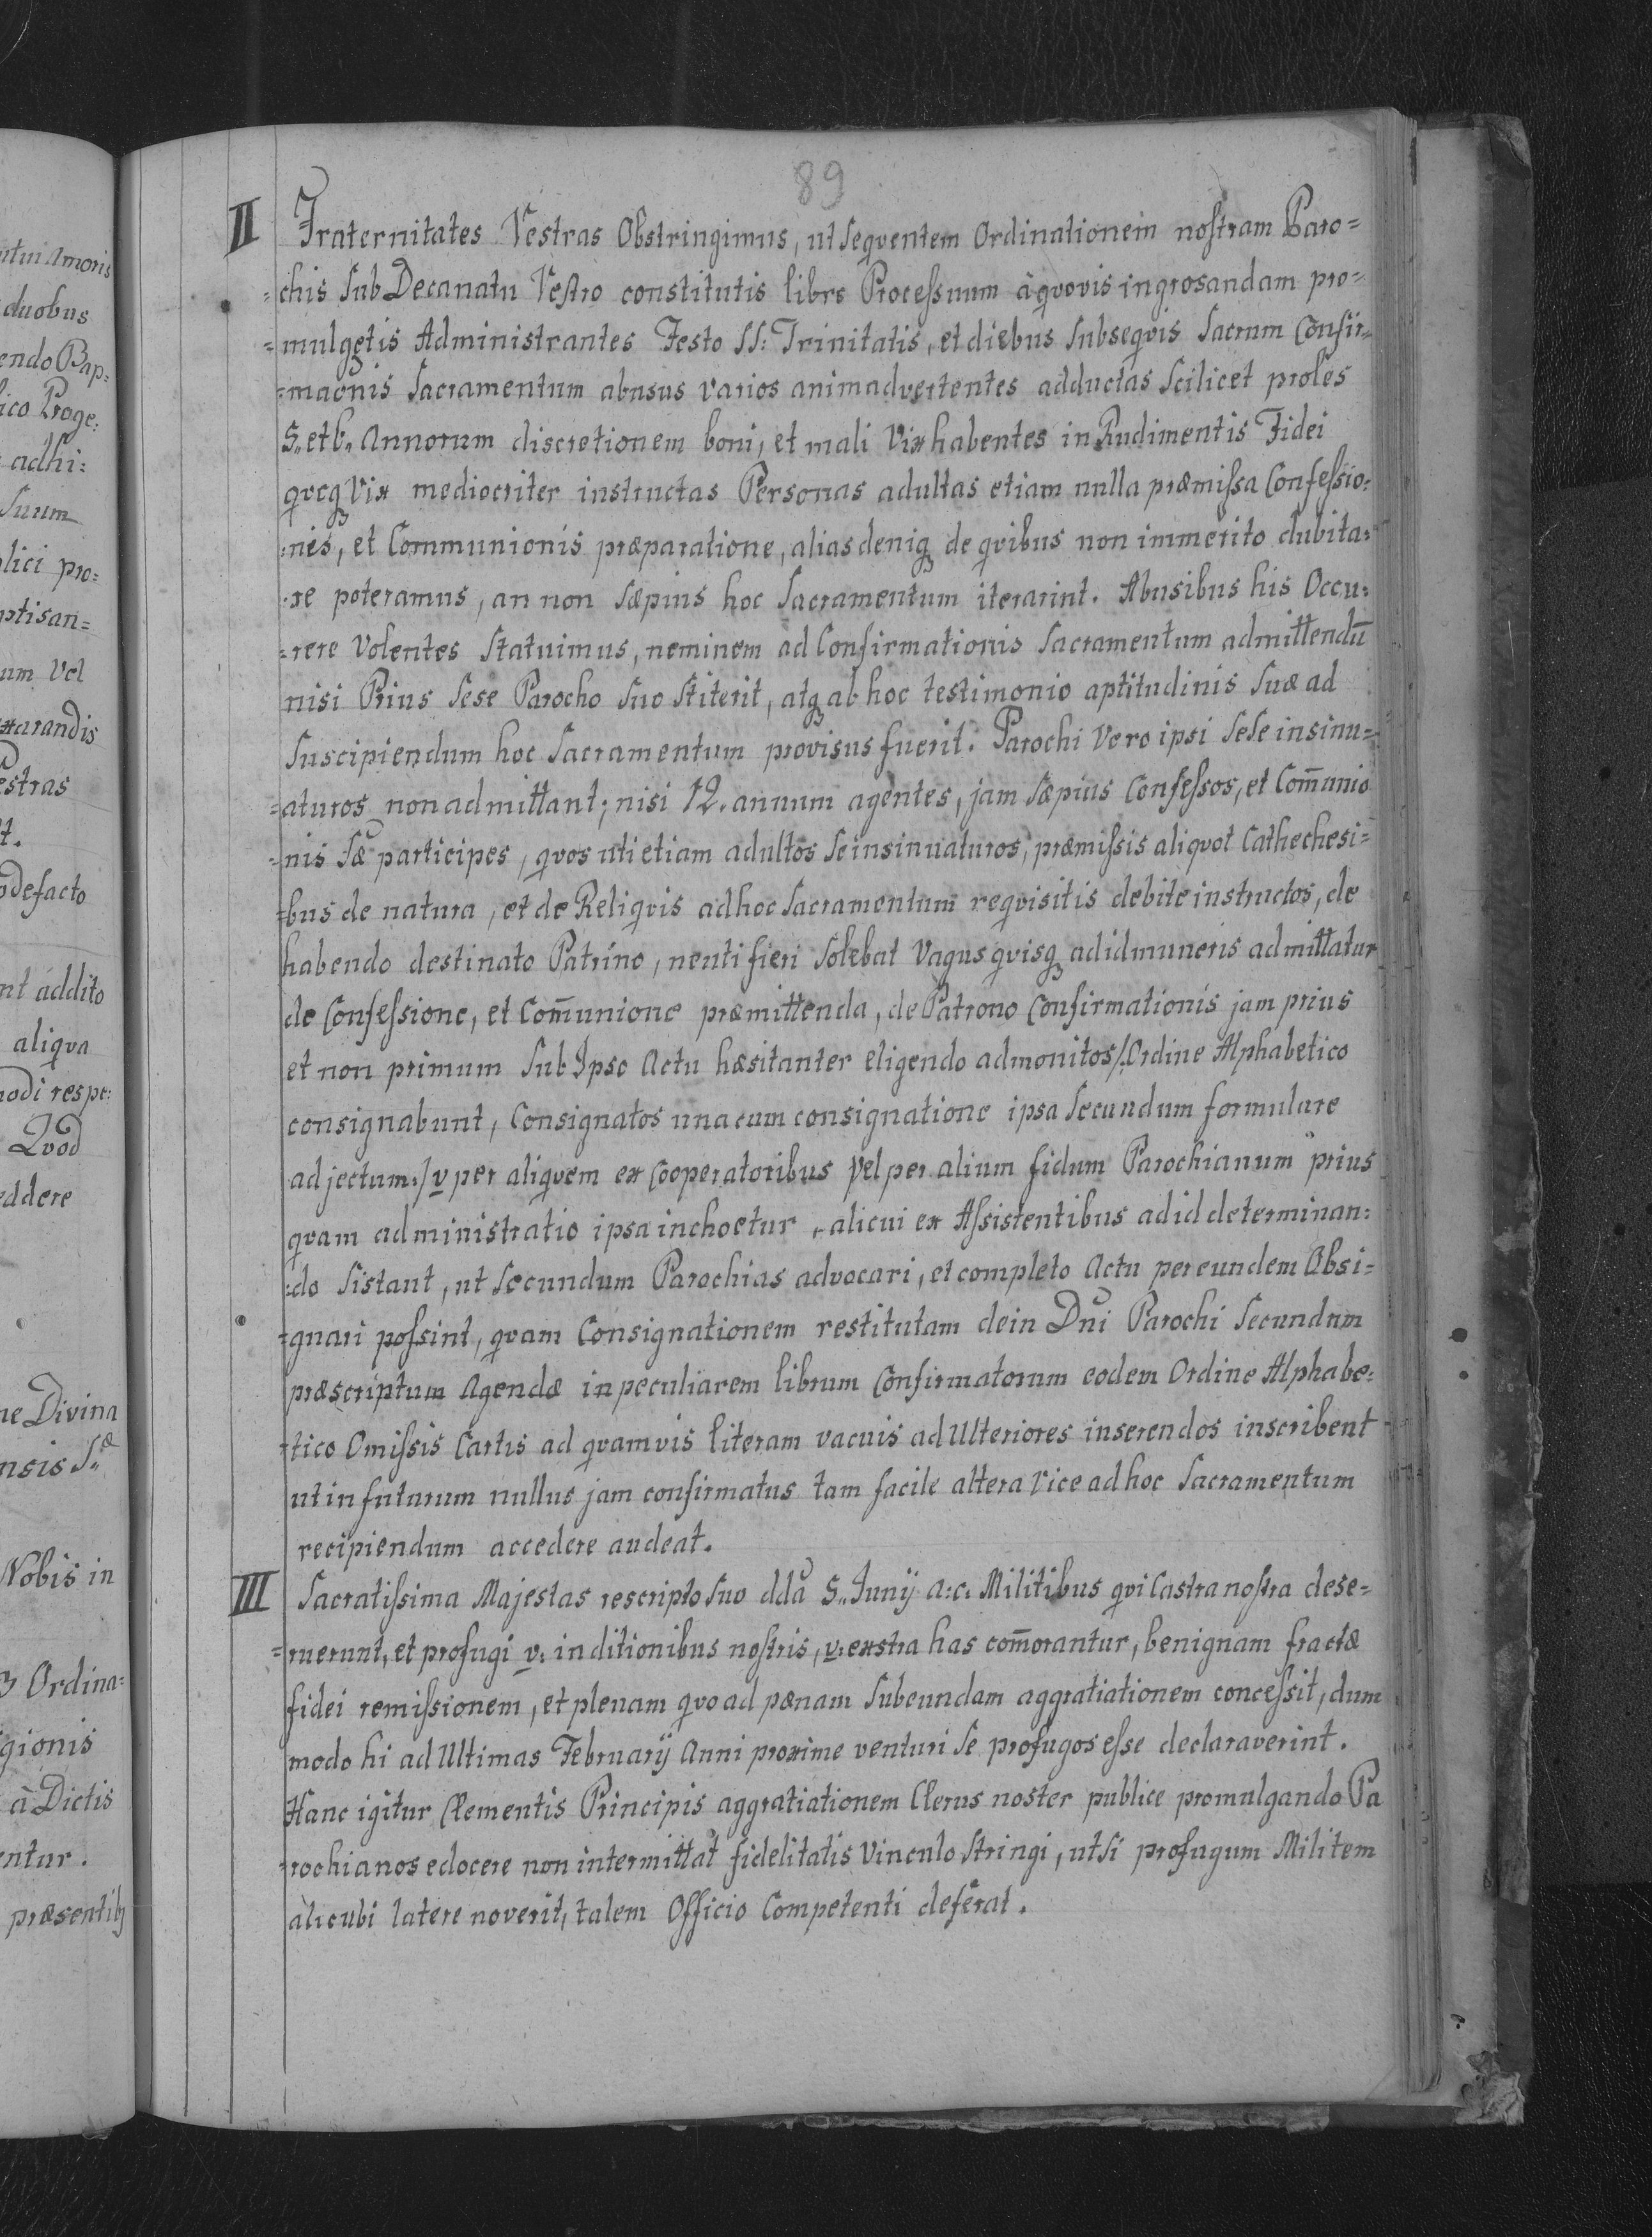 89
II Fraternitates Vestras Obstringimus, ut seqventem Ordinationem nostram Paro=
=chis sub Decanatu Vestro constitutis libro Processuum à qvovis ingrosandam pro=
=mulgetis Administrantes Festo SS: Trinitatis, et diebus subseqvis Sacrum Confir=
=maōnis Sacramentum abusus varios animadvertentes adductas scilicet proles
5,, et 6,, Annorum discretionem boni, et mali vix habentes in Rudimentis Fidei
qvoq vix mediocriter instructas Personas adultas etiam nulla præmissa Confessio:
:nis, et Communionis præparatione, alias deniq de qvibus non immerito dubita:
:re poteramus, an non sæpius hoc Sacramentum iterarint. Abusibus his Occu:
:rere volentes statuimus, neminem ad Confirmationis Sacramentum admittendū
nisi Prius sese Parocho suo stiterit, atq ab hoc testimonio aptitudinis suæ ad
suscipiendum hoc Sacramentum provisus fuerit. Parochi vero ipsi sese insinu=
=aturos non admittant; nisi 12. annum agentes, jam sæpius Confessos, et Com̄unio
=nis Sæ participes, qvos uti etiam adultos se insinuaturos, præmissis aliqvot Cathechesi=
=bus de natura, et de Reliqvis ad hoc Sacramentum reqvisitis debite instructos, de
habendo destinato Patrino, ne uti fieri solebat vagus qvisq ad id muneris admittatur
de Confessione, et Com̄unione præmittenda, de Patrono Confirmationis jam prius
et non primum sub Ipso Actu hæsitanter eligendo admonitos /: Ordine Alphabetico
consignabunt, Consignatos una cum consignatione ipsa secundum formulare
adjectum :/ v per aliqvem ex Cooperatoribus vel per alium fidum Parochianum prius
qvam administratio ipsa inchoetur, alicui ex Assistentibus ad id determinan:
:do sistant, ut secundum Parochias advocari, et completo Actu per eundem Obsi=
=gnari possint, qvam Consignationem restitutam dein Dni Parochi secundum
præscriptum Agendæ in peculiarem librum Confirmatorum eodem Ordine Alphabe:
:tico Omissis Cartis ad qvamvis literam vacuis ad Ulteriores inserendos inscribent
ut in futurum nullus jam confirmatus tam facile altera vice ad hoc Sacramentum
recipiendum accedere audeat.
III Sacratissima Majestas rescripto suo dda 5,, Junÿ a: c: Militibus qvi Castra nostra dese=
=ruerunt, et profugi v: in ditionibus nostris, v: exstra has com̄orantur, benignam fractæ
fidei remissionem, et plenam qvo ad pænam subeundam aggratiationem concessit, dum
modo hi ad Ultimas Februarÿ Anni proxime venturi se profugos esse declaraverint.
Hanc igitur Clementis Principis aggratiationem Clerus noster publice promulgando Pa
:rochianos edocere non intermittat fidelitatis vinculo stringi, ut si profugum Militem
alicubi latere noverit, talem Officio Competenti deferat.
duobus
adhi:
suum
um vel
estras
defacto
nt addito
aliqva
Qvod
Nobis in
à Dictis